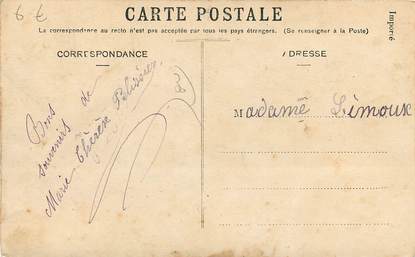 6 €
CARTE POSTALE
La correspondance au recto n'est pas acceptée par tous les pays étrangers. (Se renseigner à la Poste)
Imparcé
CORRESPONDANCE
ADRESSE
Bons
souvenirs de
Marie Thérèse Pelissier
Madame Limoux